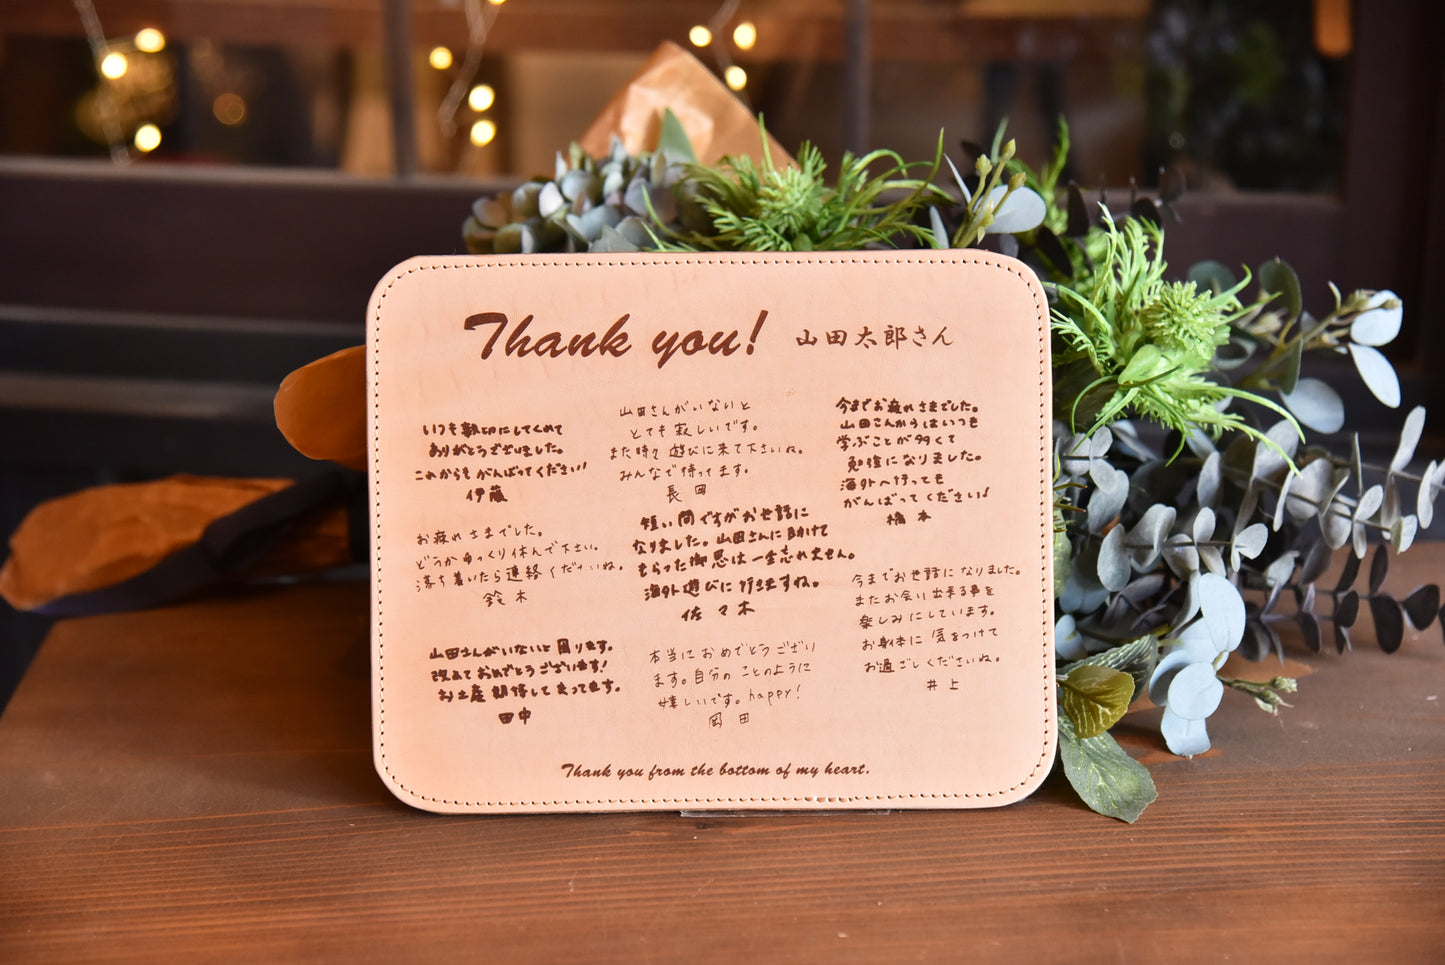 Thank you! 山田太郎さん
いつも親切にしてくれて
ありがとうございました。
これからもがんばってください!
伊藤
山田さんがいないと
とても寂しいです。
また時々遊びに来て下さいね。
みんなで待ってます。
長田
今までお疲れさまでした。
山田さんからはいつも
学ぶことが多くて
勉強になりました。
海外へ行っても
がんばってください!
橋本
お疲れさまでした。
どうかゆっくり休んで下さい。
落ち着いたら連絡くださいね。
鈴木
短い間ですがお世話に
なりました。山田さんに助けて
もらった御恩は一生忘れません。
海外遊びに行きますね。
佐々木
今までお世話になりました。
またお会い出来る事を
楽しみにしています。
お身体に気をつけて
お過ごしくださいね。
井上
山田さんがいないと困ります。
改めておめでとうございます!
お土産期待してまってます。
田中
本当におめでとうござい
ます。自分のことのように
嬉しいです。happy!
岡田
Thank you from the bottom of my heart.